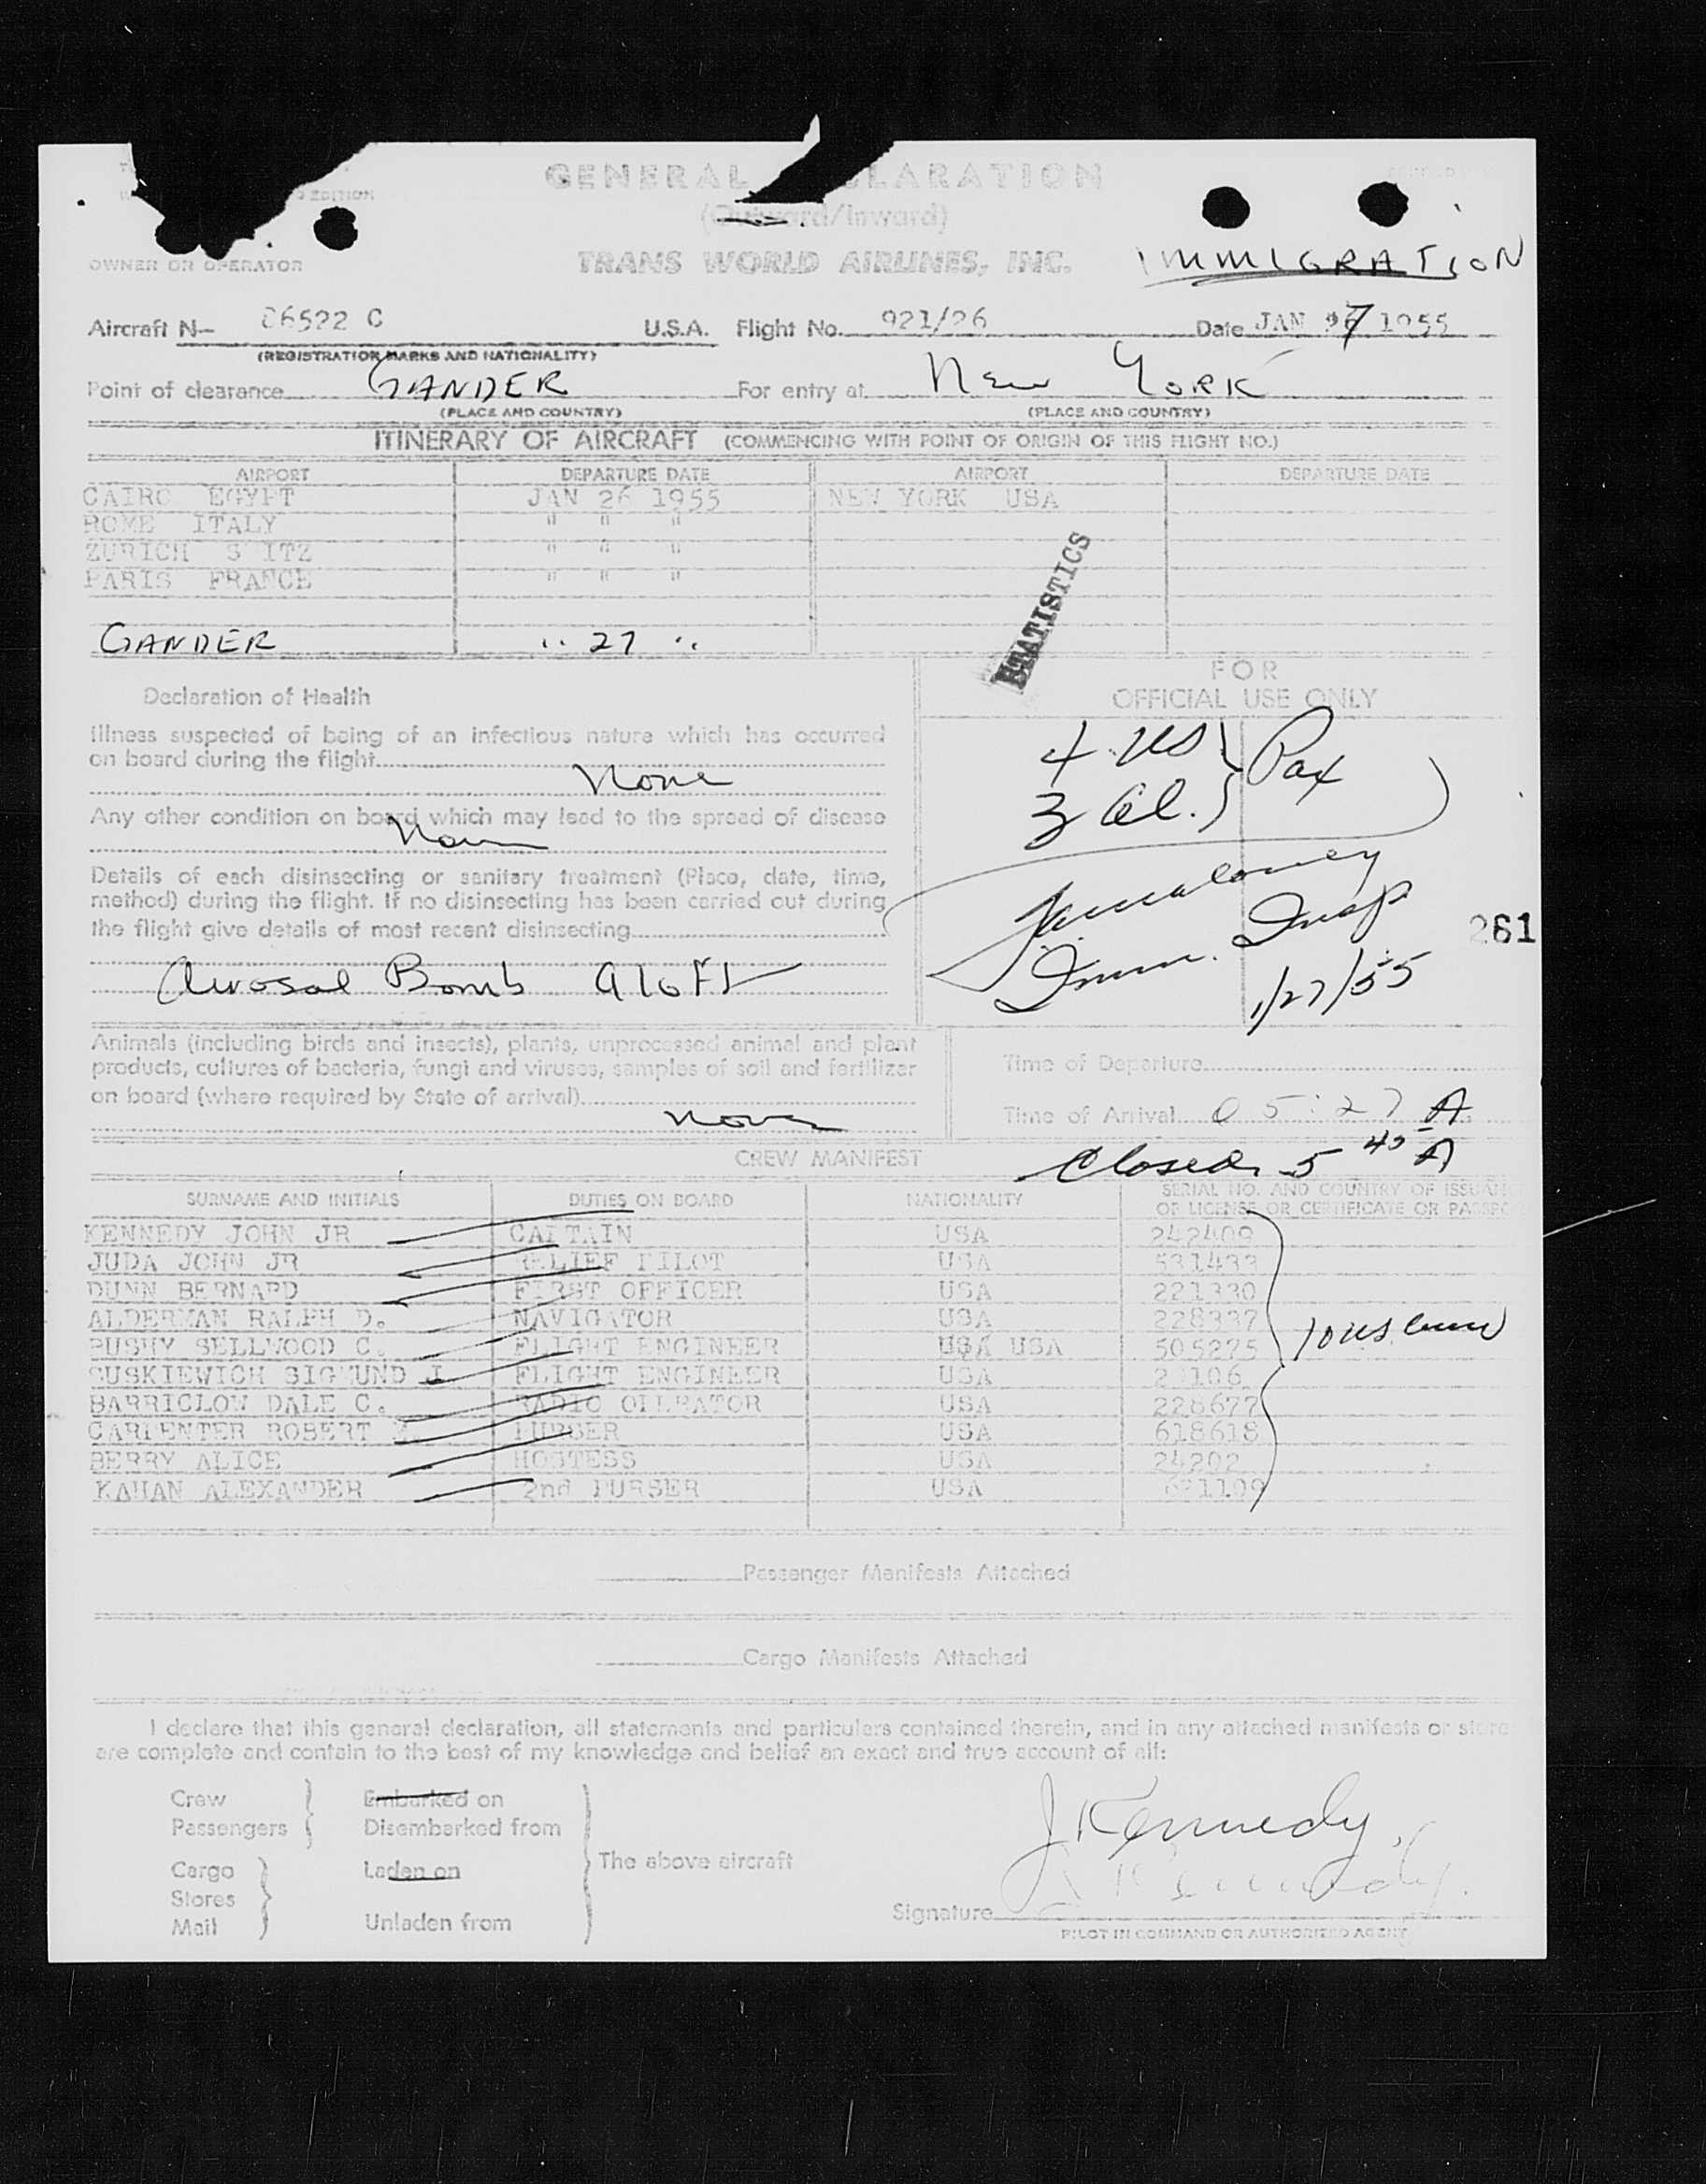 EDITION
GENERAL LARATION
(Outward/Inward)
OWNER OR OPERATOR
TRANS WORLD AIRLINES, INC.
IMMIGRATION
Aircraft N— 06522 C U.S.A. Flight No. 921/26 Date JAN 27 1955
(REGISTRATION MARKS AND NATIONALITY)
Point of clearance GANDER For entry at New YORK
(PLACE AND COUNTRY) (PLACE AND COUNTRY)
ITINERARY OF AIRCRAFT (COMMENCING WITH POINT OF ORIGIN OF THIS FLIGHT NO.)
AIRPORT DEPARTURE DATE AIRPORT DEPARTURE DATE
CAIRO EGYPT JAN 26 1955 NEW YORK USA
ROME ITALY " " "
ZURICH S ITZ " " "
PARIS FRANCE " " "
STATISTICS
GANDER " 27 "
FOR
OFFICIAL USE ONLY
4 US } Pax
3 al. }
Imm. Insp
1/27/55
261
Declaration of Health
Illness suspected of being of an infectious nature which has occurred
on board during the flight
None
Any other condition on board which may lead to the spread of disease
None
Details of each disinsecting or sanitary treatment (Place, date, time,
method) during the flight. If no disinsecting has been carried out during
the flight give details of most recent disinsecting
Aerosol Bomb Aloft
Animals (including birds and insects), plants, unprocessed animal and plant
products, cultures of bacteria, fungi and viruses, samples of soil and fertilizer
on board (where required by State of arrival)
None
Time of Departure
Time of Arrival 05:27 A
Closed 5 40 A
CREW MANIFEST
SURNAME AND INITIALS DUTIES ON BOARD NATIONALITY SERIAL NO. AND COUNTRY OF ISSUAN
OF LICENSE OR CERTIFICATE OR PASSPO
KENNEDY JOHN JR CAPTAIN USA 242409
JUDA JOHN JR RELIEF PILOT USA 531433
DUNN BERNARD FIRST OFFICER USA 221330
ALDERMAN RALPH D. NAVIGATOR USA 228337
PUSHY SELLWOOD C. FLIGHT ENGINEER USA USA 505275
SUSKIEWICH SIGMUND J FLIGHT ENGINEER USA
BARRICLOW DALE C. RADIO OPERATOR USA 228677
CARPENTER ROBERT PURSER USA 618618
BERRY ALICE HOSTESS USA 24202
KAHAN ALEXANDER 2nd PURSER USA
10 US
Passenger Manifests Attached
Cargo Manifests Attached
I declare that this general declaration, all statements and particulars contained therein, and in any attached manifests or store
are complete and contain to the best of my knowledge and belief an exact and true account of all:
Crew Embarked on
Passengers Disembarked from
The above aircraft
Cargo Laden on
Stores
Mail Unladen from
J Kennedy
J Kennedy
Signature
PILOT IN COMMAND OR AUTHORIZED AGENT